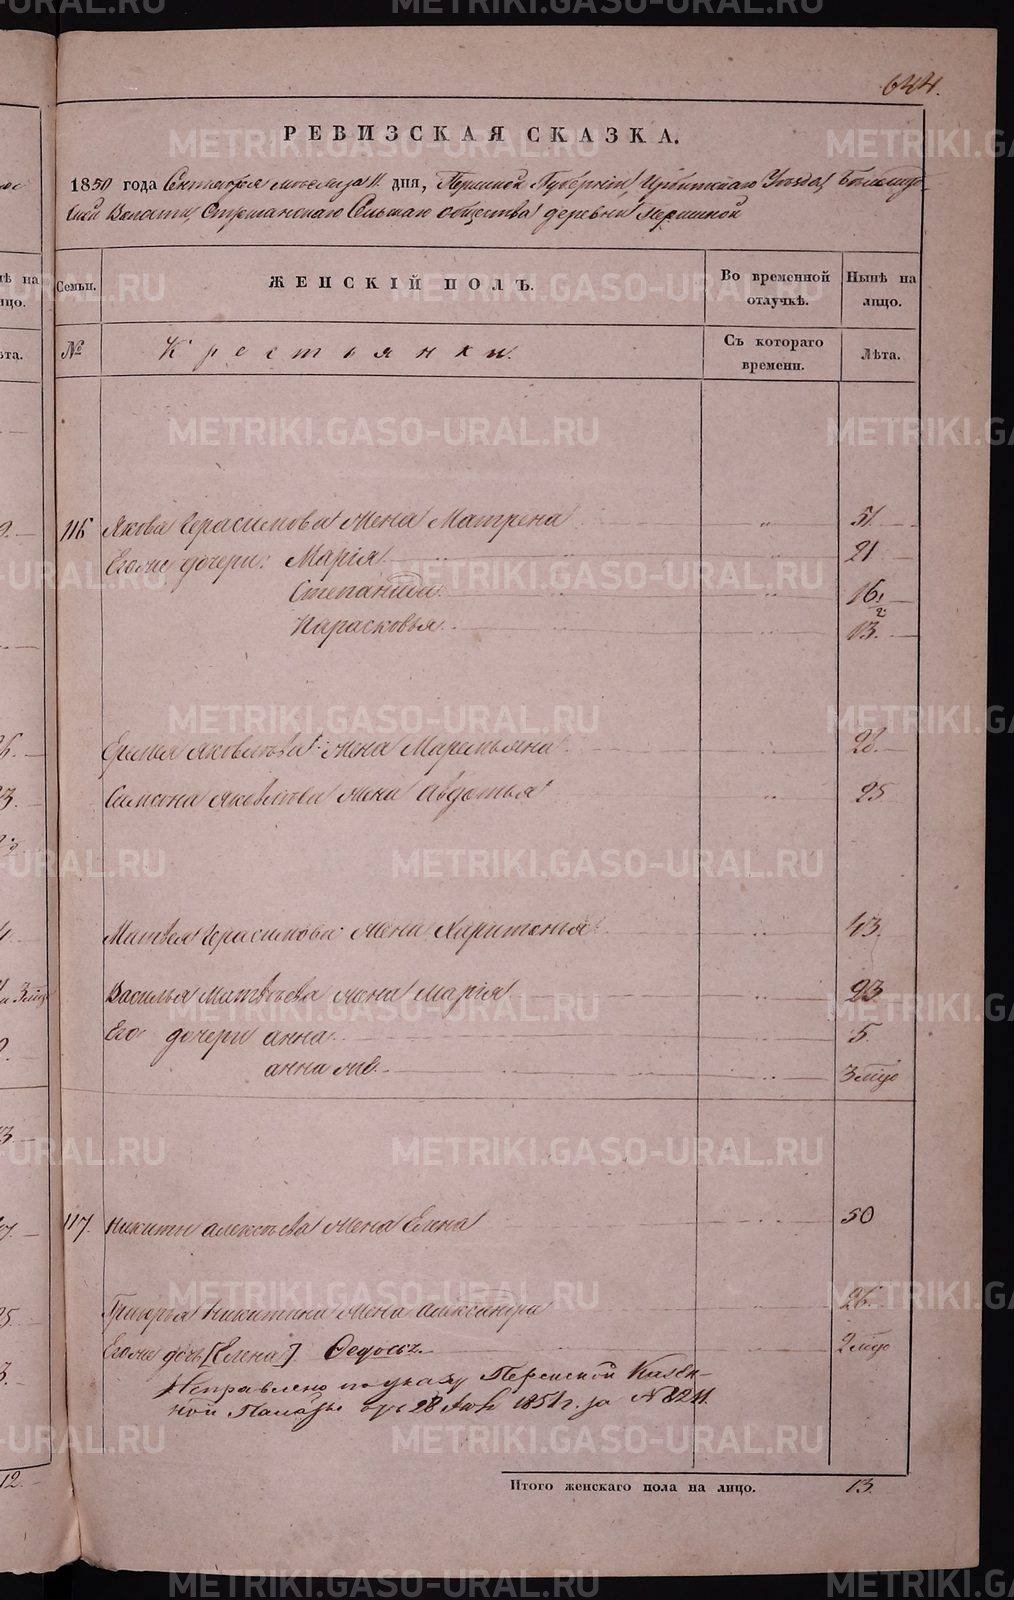 644.
РЕВИЗСКАЯ СКАЗКА.
1850 года Сентября месяца 11 дня, Пермской Губернiи Ирбитскаго Уѣзда
Волости Сельскаго общества деревни Першиной
Семьи. ЖЕНСКIЙ ПОЛЪ. Во временной отлучкѣ. Нынѣ на лицо.
№ Крестьянки. Съ котораго времени. Лѣта.
116 Якова Герасимова жена Матрена 51
Егоже дочери: Марiя 21
Степанида 16
Парасковья 13.
Яковлева жена Маремьяна 28.
Самсона Яковлева жена Авдотья 25
Матвея Герасимова жена Харитонья 43
Василья Матвѣева жена Марiя 23
Его дочери анна 5.
анна же 3 мцо
117. Никиты алексѣева жена Елена 50
Григорья Никитина жена александра 26.
Егоже дочь [Елена]. Федосья 2 мцо
Исправлено по указу Пермской Казен-
ной Палаты отъ 28 1851 г. за №
Итого женскаго пола на лицо. 13.